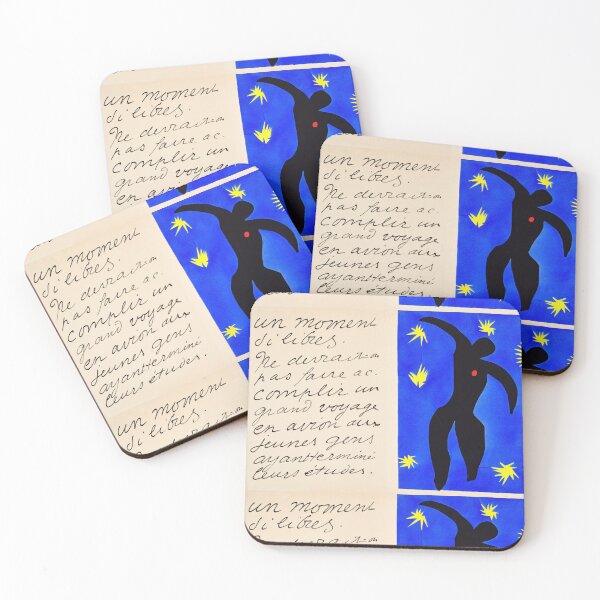 un moment
si libres.
Ne devrait-on
pas faire ac
complir un
grand voyage
en avion
un moment
si libres.
Ne devrait-on
pas faire ac
complir un
grand voyage
en avion aux
jeunes gens
ayant terminé
leurs études.
un moment
si libres.
Ne devrait-on
pas faire ac
complir un
grand voyage
en avion aux
jeunes gens
ayant terminé
leurs études.
un moment
si libres.
un moment
si libres.
Ne devrait-on
pas faire ac
complir un
grand voyage
en avion aux
jeunes gens
ayant terminé
leurs études.
un moment
si libres.